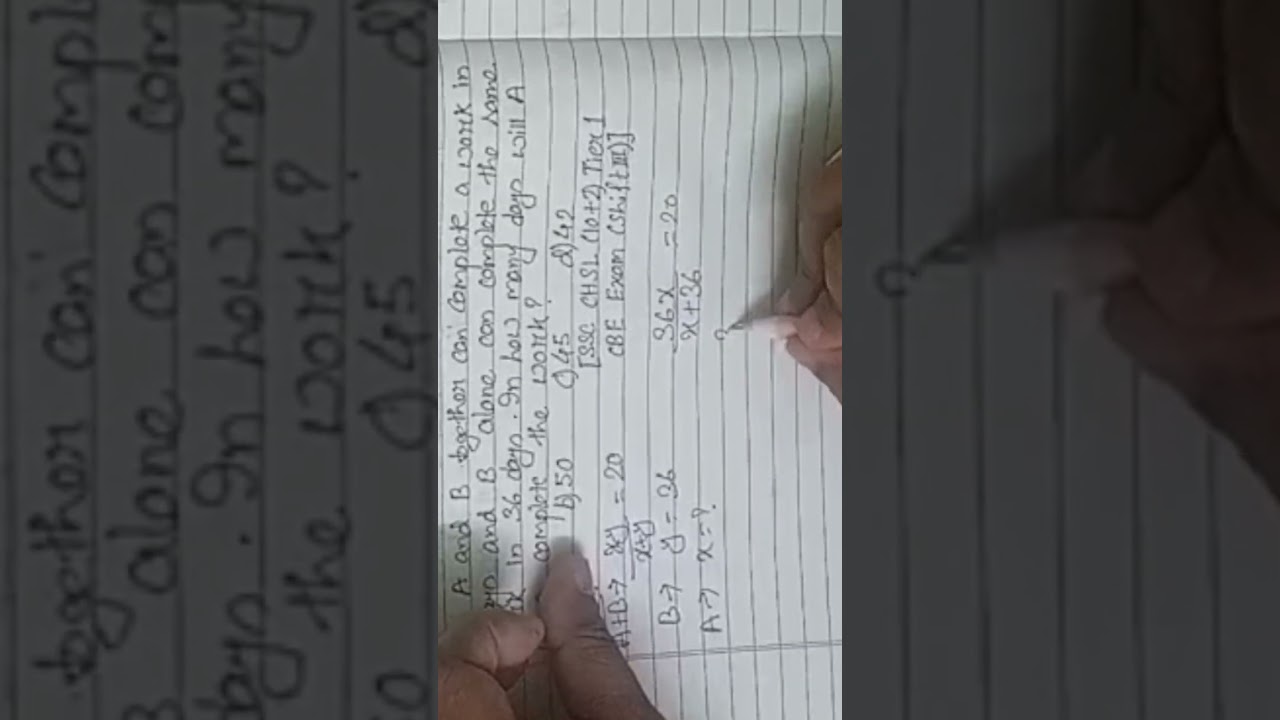 A and B together can complete a work in
and B alone can complete the same
in 36 days. In how many days will A
complete the work?
b) 50 c) 45 d) 42
[SSC CHSL (10+2) Tier 1
CBE Exam (Shift III)]
A+B→ xy/x+y = 20
36x/x+36 = 20
B→ y = 36
A→ x = ?